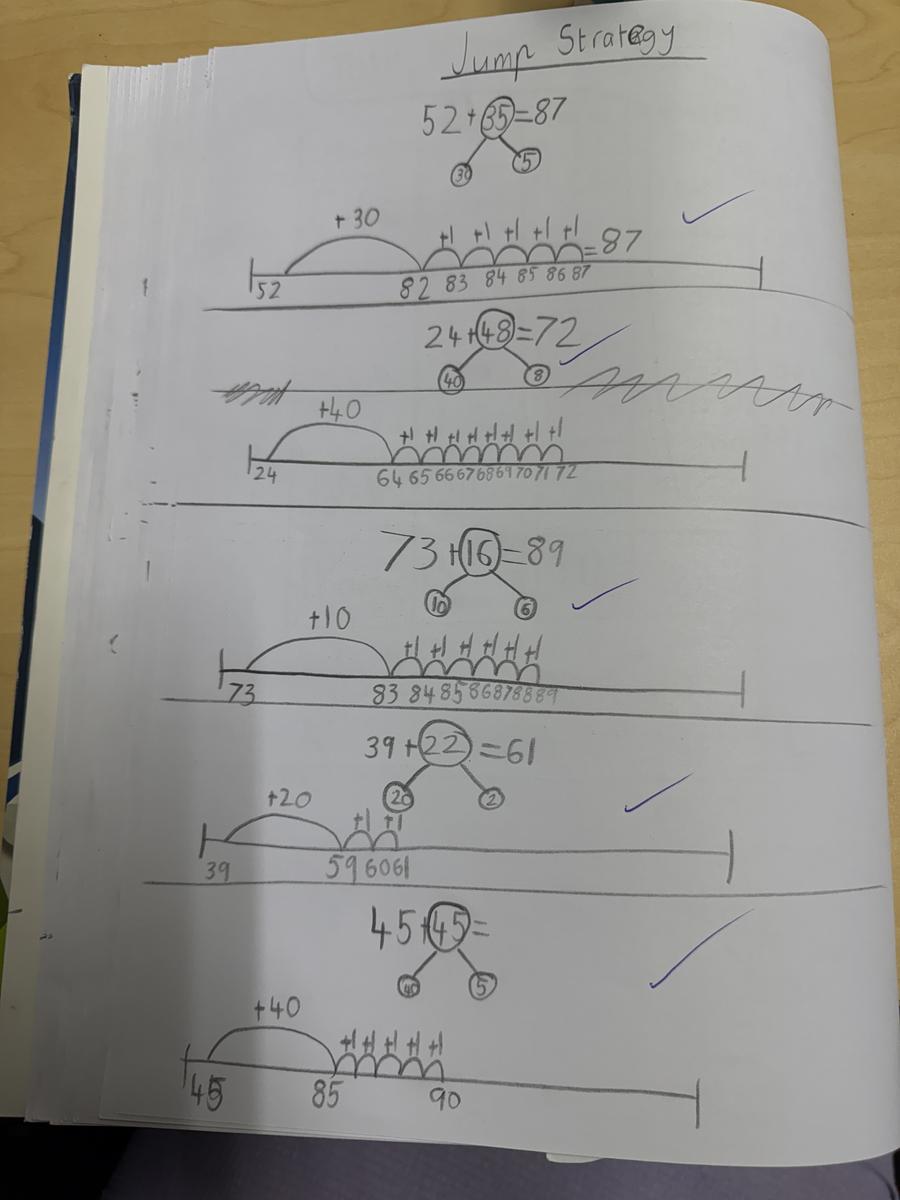 Jump Strategy
52+35=87
30 5
+30 +1 +1 +1 +1 +1 =87
52 82 83 84 85 86 87
24+48=72
40 8
+40 +1 +1 +1 +1 +1 +1 +1 +1
24 64 65 66 67 68 69 70 71 72
73+16=89
10 6
+10 +1 +1 +1 +1 +1 +1
73 83 84 85 86 87 88 89
39+22=61
20 2
+20 +1 +1
39 59 60 61
45+45=
40 5
+40 +1 +1 +1 +1 +1
45 85 90